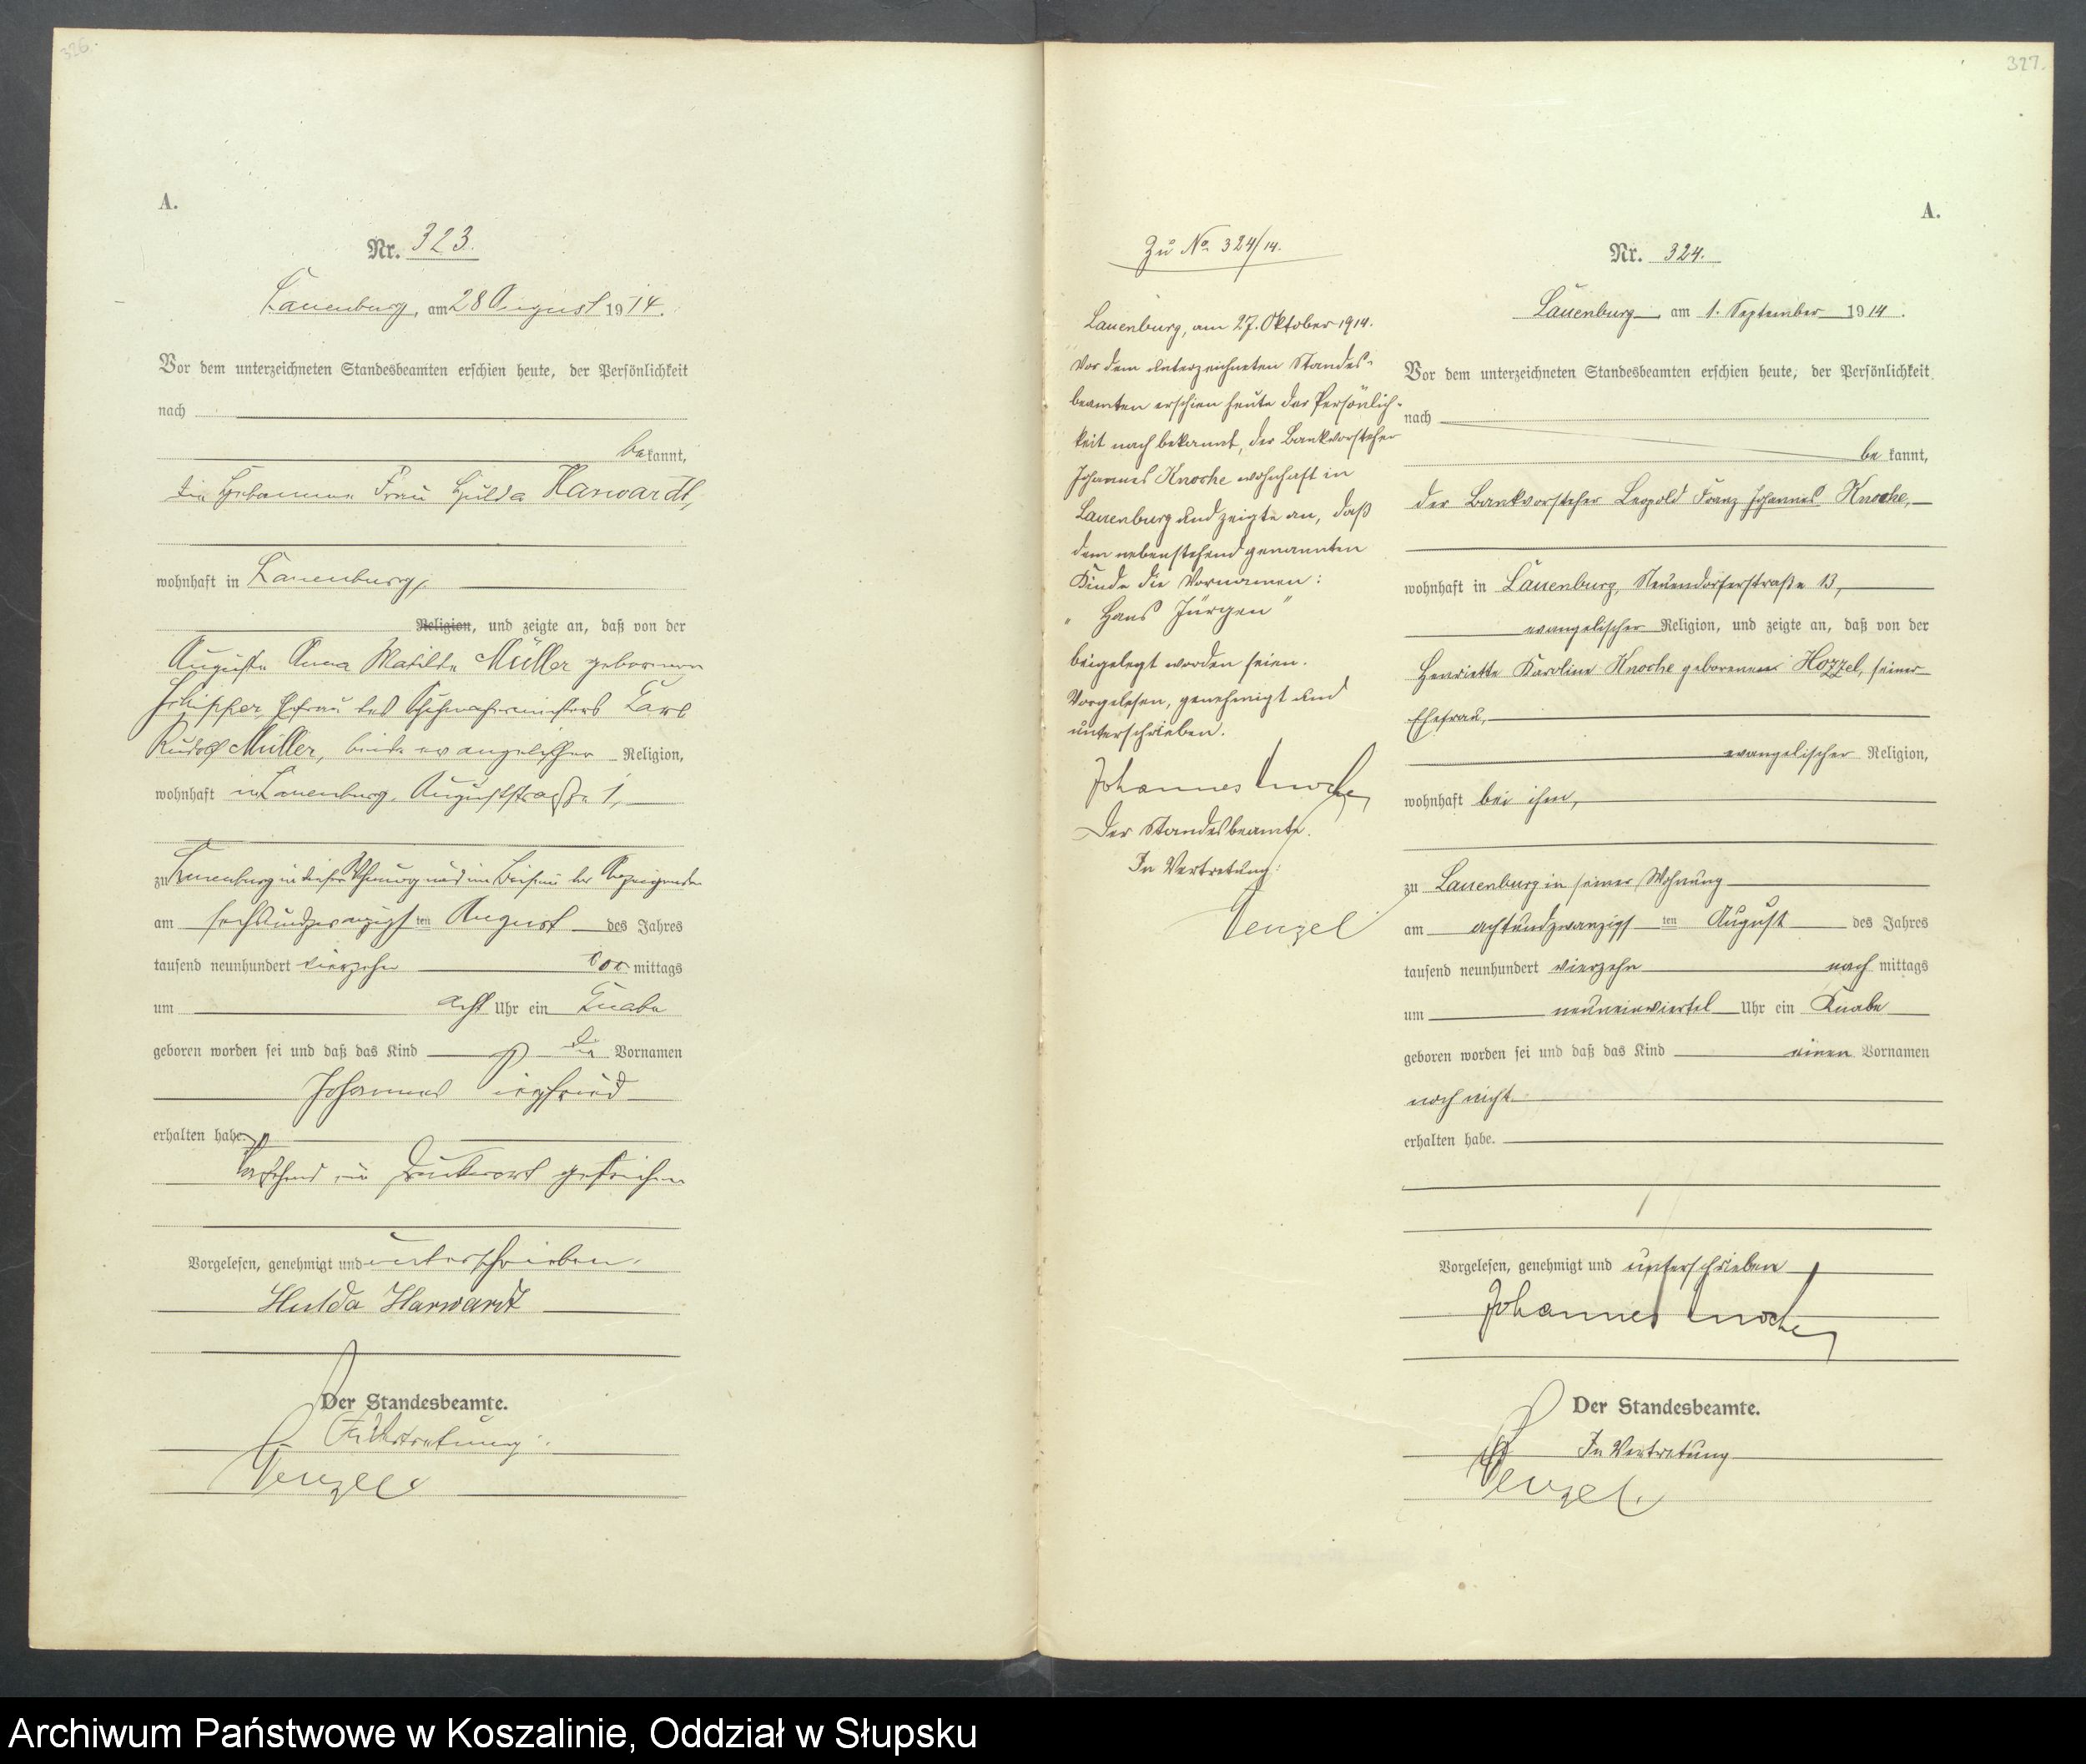 326.
A.
Nr. 323.
Lauenburg, am 28 August 1914.
Vor dem unterzeichneten Standesbeamten erschien heute, der Persönlichkeit
nach
bekannt,
die Hebamme Frau Hulda Harwardt,
wohnhaft in Lauenburg,
Religion, und zeigte an, daß von der
Auguste Anna Matilde Müller geborenen
Ehefrau des Schuhmachermeisters Carl
Rudolf Müller, beide evangelischer Religion,
wohnhaft in Lauenburg, Auguststraße 1,
zu Lauenburg in dieser Wohnung und im Beisein der Anzeigenden
am sechsundzwanzigsten August des Jahres
tausend neunhundert vierzehn vormittags
um acht Uhr ein Knabe
geboren worden sei und daß das Kind die Vornamen
Johannes Siegfried
erhalten habe.
Vorstehend ein Druckwort gestrichen
Vorgelesen, genehmigt und unterschrieben.
Hulda Harwardt
Der Standesbeamte.
In Vertretung:
Wenzel
327.
A.
Zu No. 324/14.
Lauenburg, am 27. Oktober 1914.
Vor dem unterzeichneten Standes-
beamten erschien heute der Persönlich-
keit nach bekannt, der Bankvorsteher
Johannes Knoche wohnhaft in
Lauenburg und zeigte an, daß
dem nebenstehend genannten
Kinde die Vornamen:
"Hans Jürgen"
beigelegt worden seien.
Vorgelesen, genehmigt und
unterschrieben.
Johannes Knoche
Der Standesbeamte.
In Vertretung:
Wenzel
Nr. 324.
Lauenburg am 1. September 1914.
Vor dem unterzeichneten Standesbeamten erschien heute, der Persönlichkeit
nach
bekannt,
der Bankvorsteher Leopold Franz Johannes Knoche,
wohnhaft in Lauenburg, Neuendorferstraße 13,
evangelischer Religion, und zeigte an, daß von der
Henriette Karoline Knoche geborenen Hozzel, seiner
Ehefrau,
evangelischer Religion,
wohnhaft bei ihm,
zu Lauenburg in seiner Wohnung
am achtundzwanzigsten August des Jahres
tausend neunhundert vierzehn nachmittags
um neuneinviertel Uhr ein Knabe
geboren worden sei und daß das Kind einen Vornamen
noch nicht
erhalten habe.
Vorgelesen, genehmigt und unterschrieben
Johannes Knoche
Der Standesbeamte.
In Vertretung
Wenzel.
Archiwum Państwowe w Koszalinie, Oddział w Słupsku